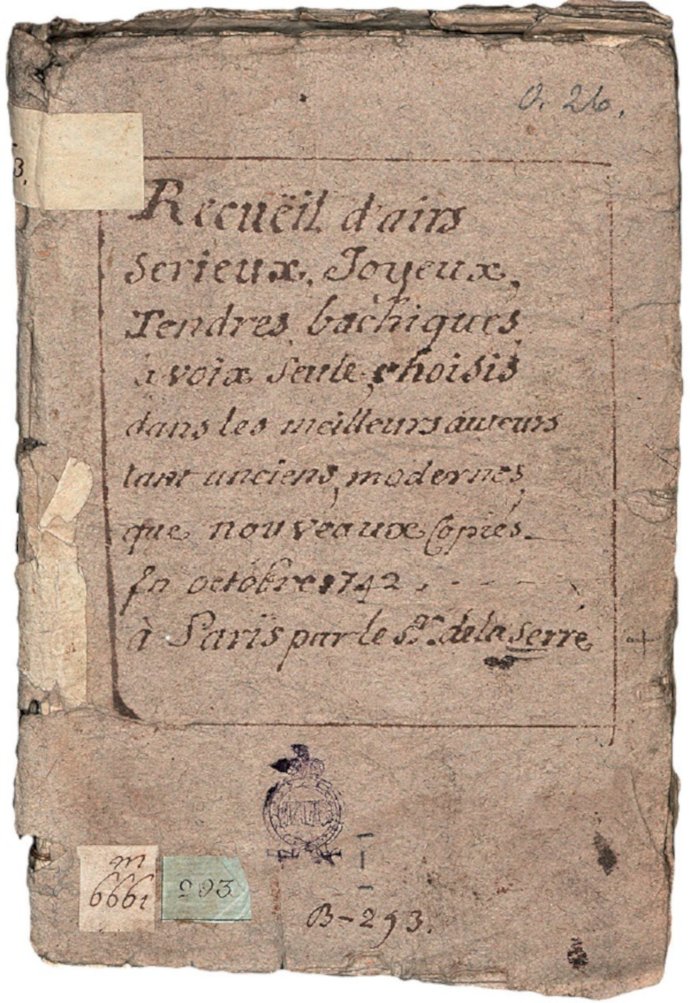 O. 26.
3.
Recuëil d'airs
serieux, Joyeux,
Tendres, bachiques,
à voix seule, choisis
dans les meilleurs auteurs
tant anciens, modernes,
que nouveaux Copiés
En octobre 1742
à Parïs par le Sr. de la Serre
m
6661
293
B-293.